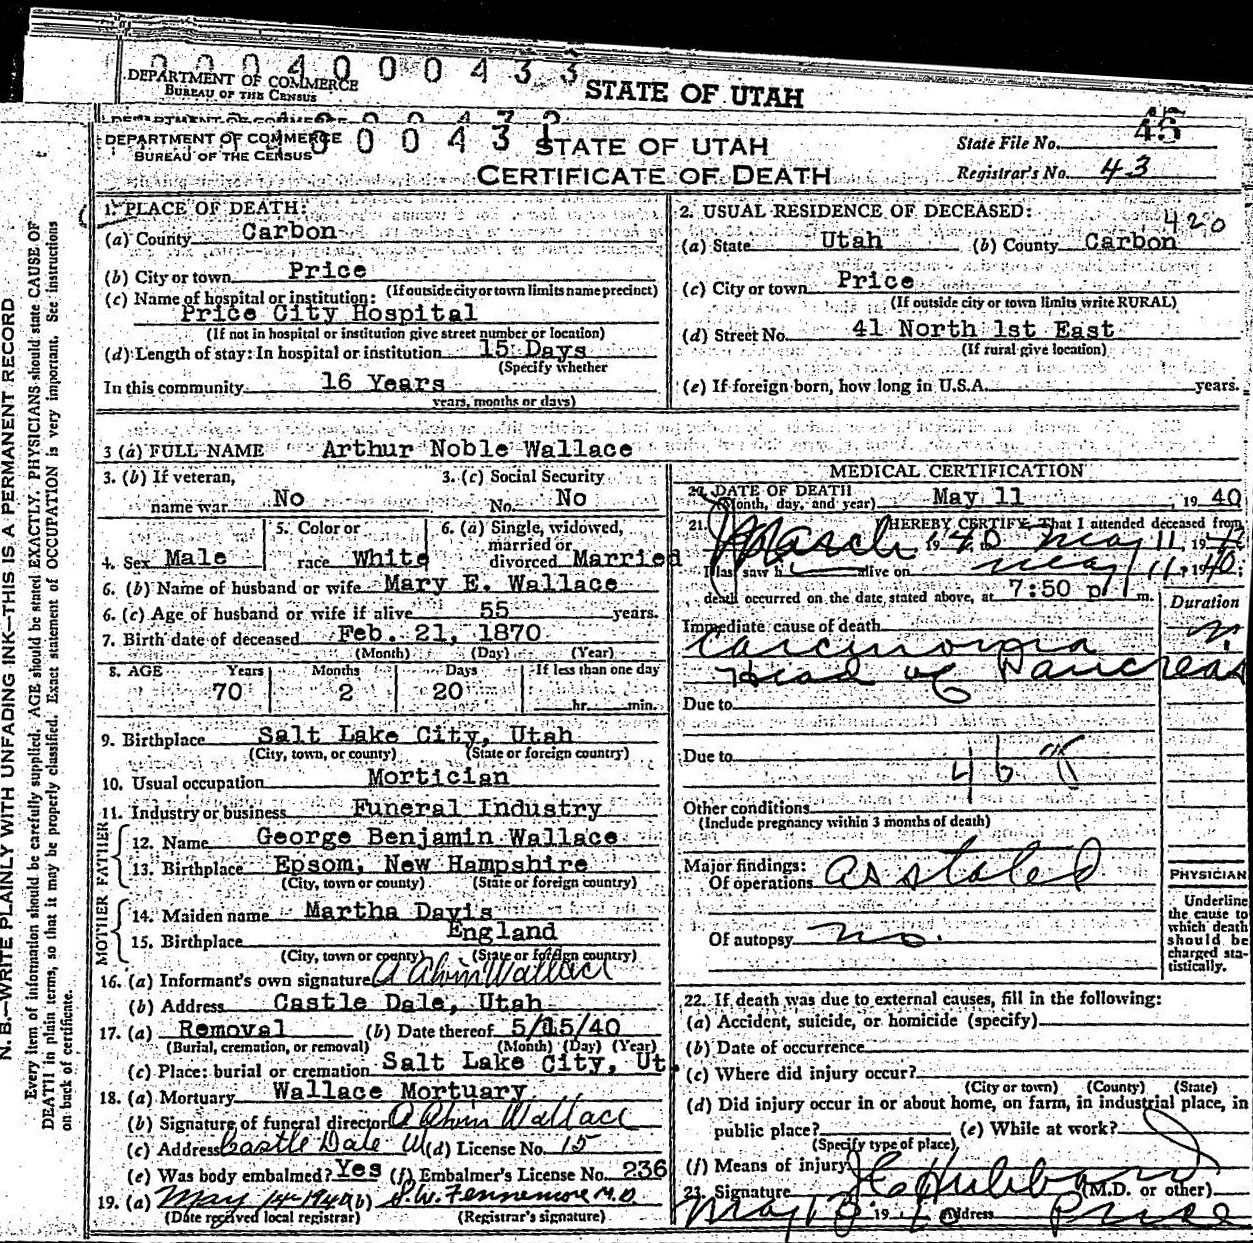 0 0 0 4 0 0 0 4 3 3
DEPARTMENT OF COMMERCE
BUREAU OF THE CENSUS
STATE OF UTAH
DEPARTMENT OF COMMERCE
BUREAU OF THE CENSUS
STATE OF UTAH
CERTIFICATE OF DEATH
State File No. 45
Registrar's No. 43
N. B.—WRITE PLAINLY WITH UNFADING INK—THIS IS A PERMANENT RECORD
Every item of information should be carefully supplied. AGE should be stated EXACTLY. PHYSICIANS should state CAUSE OF
DEATH in plain terms, so that it may be properly classified. Exact statement of OCCUPATION is very important. See instructions
on back of certificate.
1. PLACE OF DEATH:
(a) County Carbon
(b) City or town Price
(If outside city or town limits name precinct)
(c) Name of hospital or institution:
Price City Hospital
(If not in hospital or institution give street number or location)
(d) Length of stay: In hospital or institution 15 Days
(Specify whether
In this community 16 Years
years, months or days)
2. USUAL RESIDENCE OF DECEASED:
420
(a) State Utah (b) County Carbon
(c) City or town Price
(If outside city or town limits write RURAL)
(d) Street No. 41 North 1st East
(If rural give location)
(e) If foreign born, how long in U.S.A. years.
3 (a) FULL NAME Arthur Noble Wallace
3. (b) If veteran, 3. (c) Social Security
name war No No. No
4. Sex Male 5. Color or race White 6. (a) Single, widowed, married or divorced Married
6. (b) Name of husband or wife Mary E. Wallace
6. (c) Age of husband or wife if alive 55 years.
7. Birth date of deceased Feb. 21, 1870
(Month) (Day) (Year)
8. AGE Years Months Days If less than one day
70 2 20 hr. min.
9. Birthplace Salt Lake City, Utah
(City, town, or county) (State or foreign country)
10. Usual occupation Mortician
11. Industry or business Funeral Industry
FATHER
12. Name George Benjamin Wallace
13. Birthplace Epsom, New Hampshire
(City, town or county) (State or foreign country)
MOTHER
14. Maiden name Martha Davis
15. Birthplace England
(City, town or county) (State or foreign country)
16. (a) Informant's own signature A Alvin Wallace
(b) Address Castle Dale, Utah
17. (a) Removal (b) Date thereof 5/15/40
(Burial, cremation, or removal) (Month) (Day) (Year)
(c) Place: burial or cremation Salt Lake City, Ut.
18. (a) Mortuary Wallace Mortuary
(b) Signature of funeral director A Alvin Wallace
(c) Address Castle Dale U (d) License No. 15
(e) Was body embalmed? Yes (f) Embalmer's License No. 236
19. (a) May 14-1940 (b) S.W. Fennemore M.D.
(Date received local registrar) (Registrar's signature)
MEDICAL CERTIFICATION
20. DATE OF DEATH
(Month, day, and year) May 11 1940
21. I HEREBY CERTIFY, That I attended deceased from
March 1940 to May 11, 19
I last saw h alive on May 11, 1940;
death occurred on the date stated above, at 7:50 p. m.
Duration
Immediate cause of death
Carcinoma
Head of Pancreas
Due to
Due to
46
Other conditions
(Include pregnancy within 3 months of death)
Major findings:
Of operations As stated
Of autopsy no.
PHYSICIAN
Underline
the cause to
which death
should be
charged sta-
tistically.
22. If death was due to external causes, fill in the following:
(a) Accident, suicide, or homicide (specify)
(b) Date of occurrence
(c) Where did injury occur?
(City or town) (County) (State)
(d) Did injury occur in or about home, on farm, in industrial place, in
public place? (e) While at work?
(Specify type of place)
(f) Means of injury
23. Signature J C Hubbard (M.D. or other)
May 13 1940 Address Price